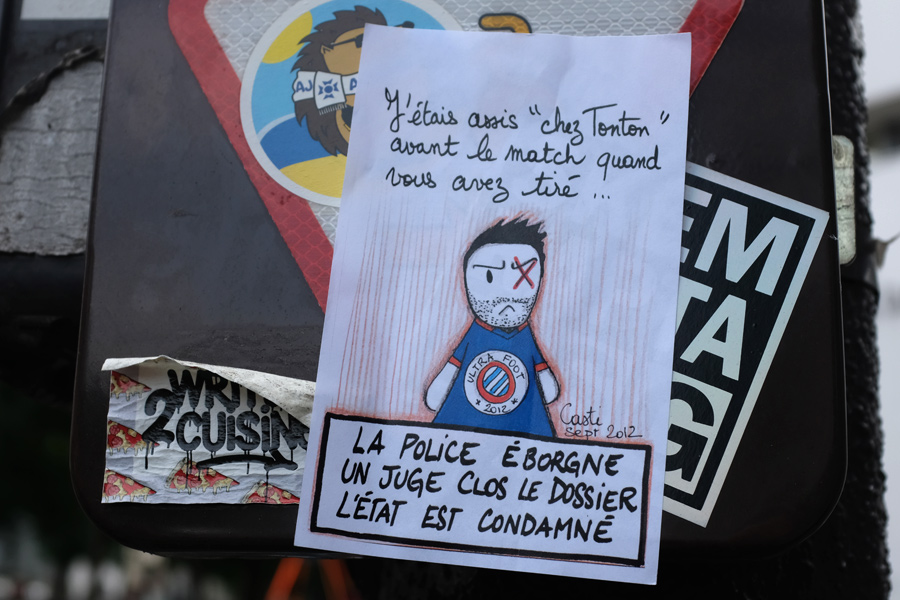 J'étais assis "chez Tonton"
avant le match quand
vous avez tiré ...
ULTRA FOOT
2012
Casti
sept 2012
LA POLICE ÉBORGNE
UN JUGE CLOS LE DOSSIER
L'ÉTAT EST CONDAMNÉ
AJ
EM
TA
G
2CUISIN